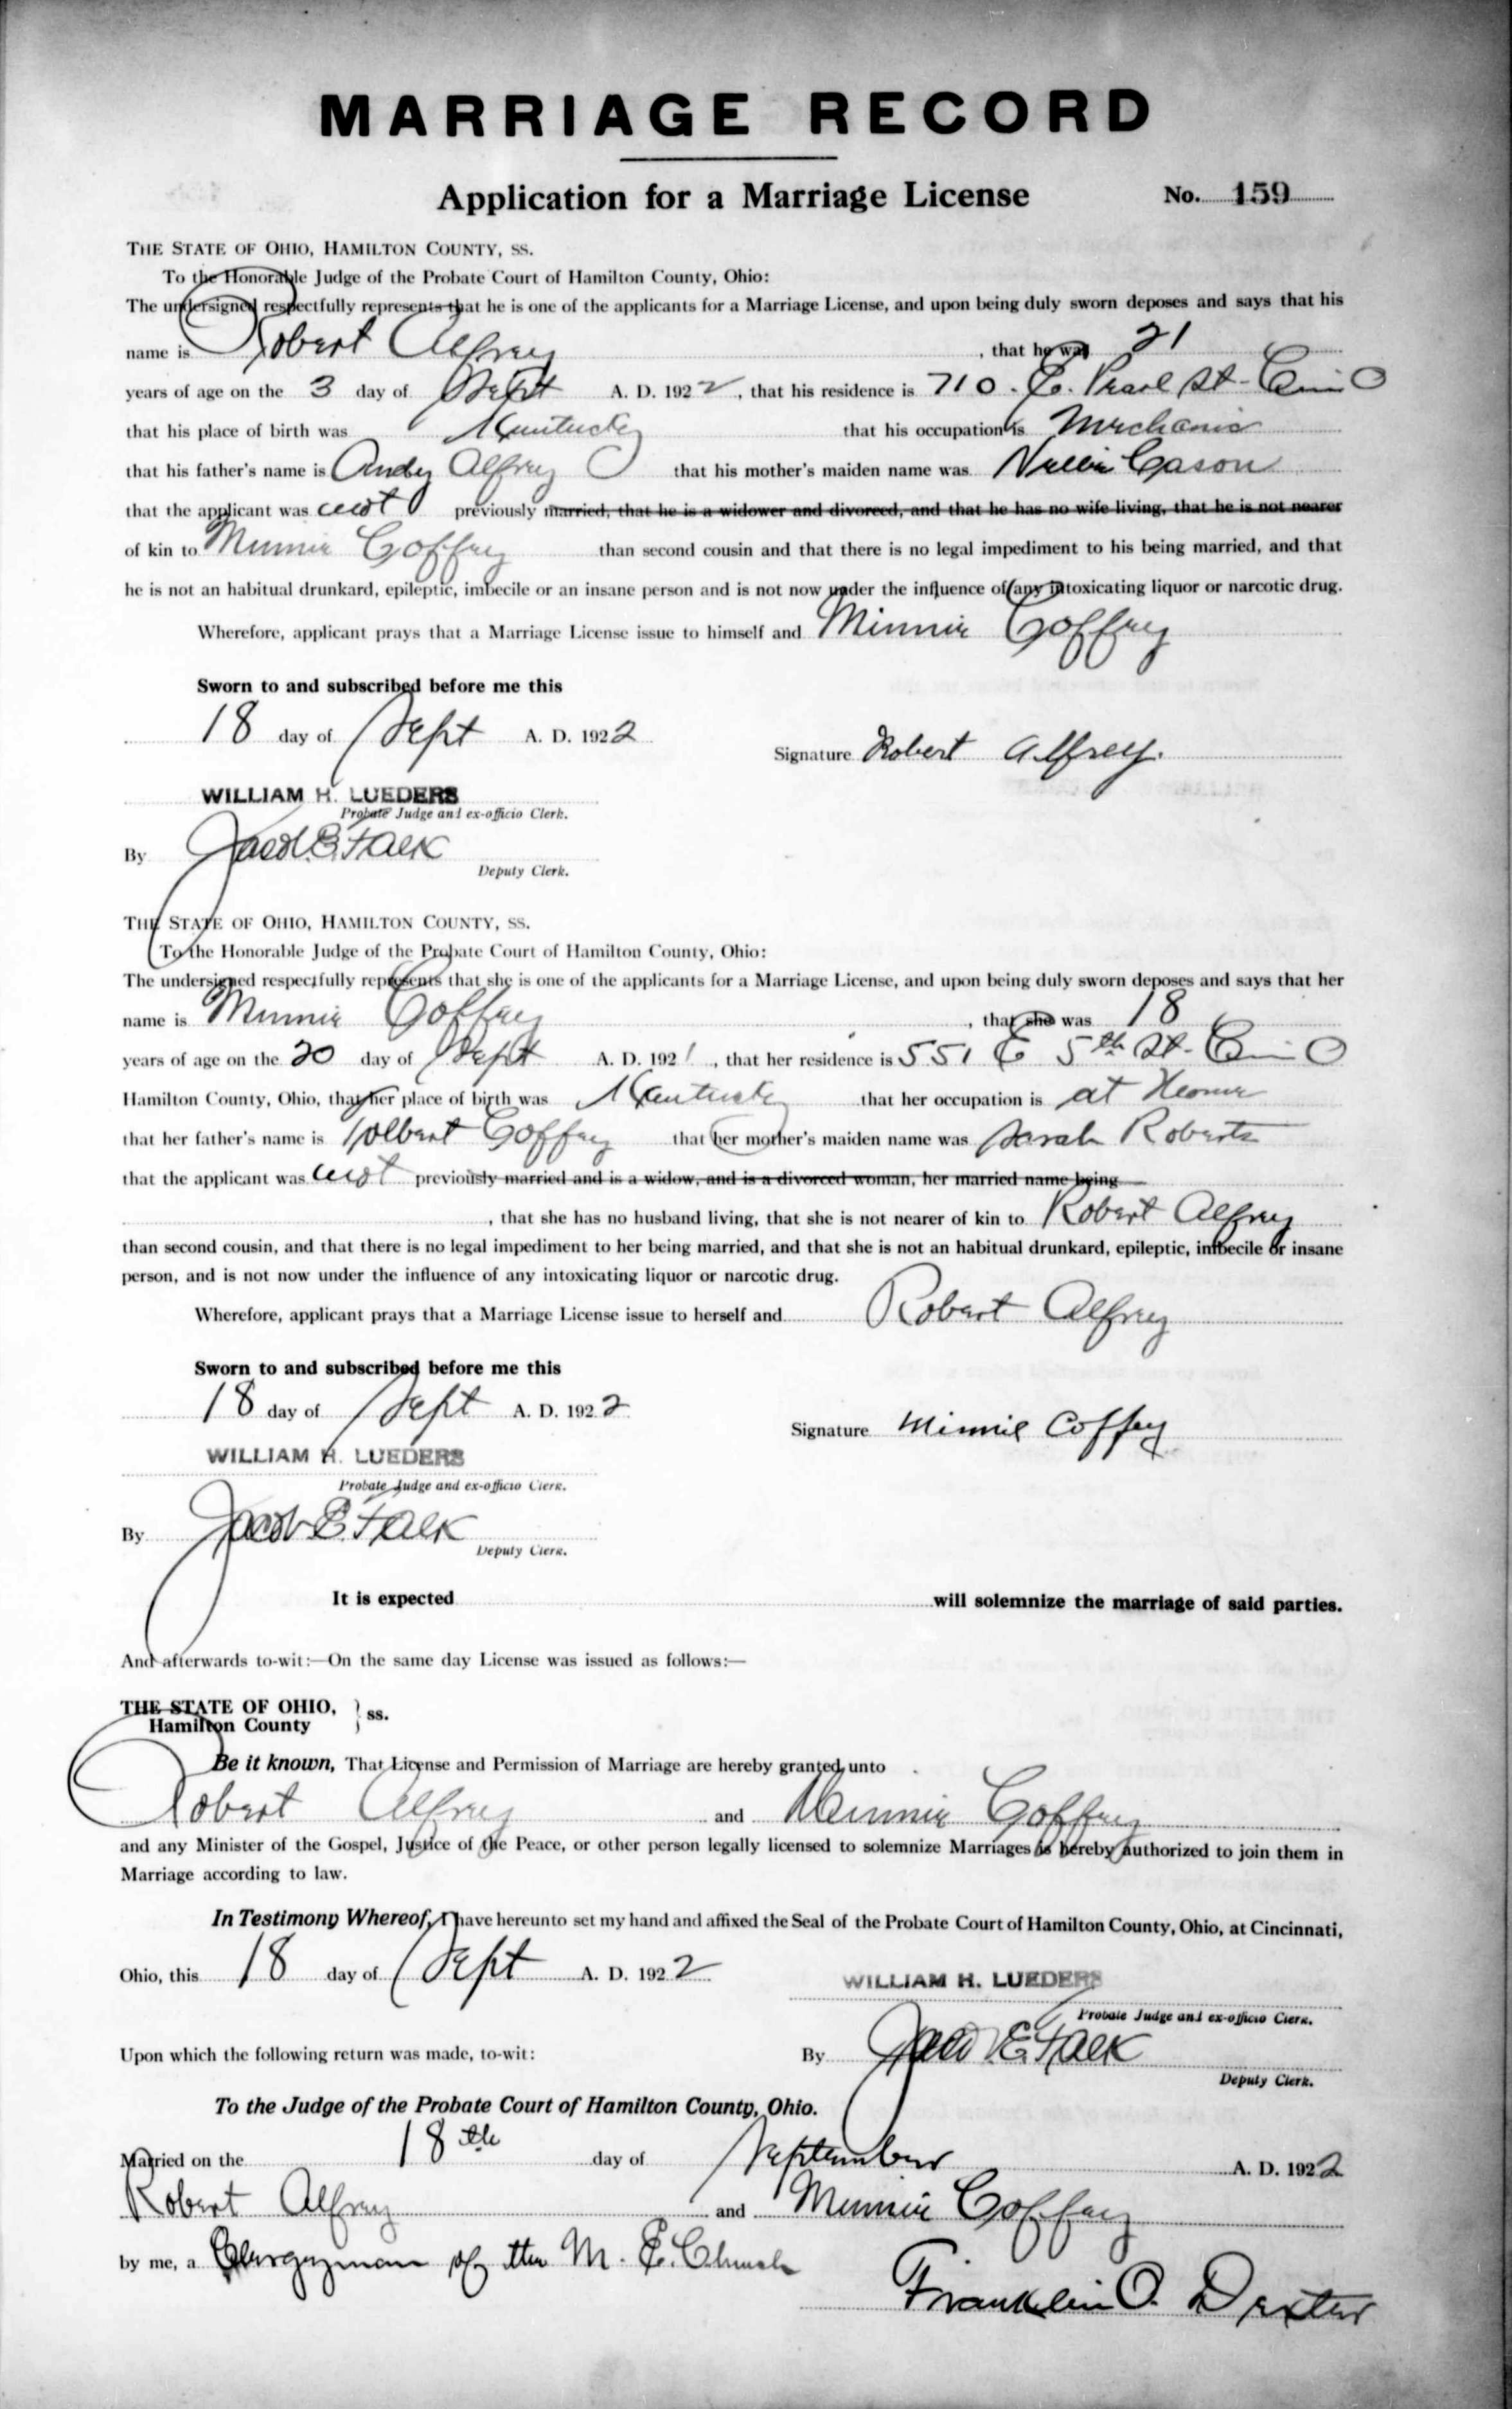 MARRIAGE RECORD
Application for a Marriage License No. 159
THE STATE OF OHIO, HAMILTON COUNTY, SS.
To the Honorable Judge of the Probate Court of Hamilton County, Ohio:
The undersigned respectfully represents that he is one of the applicants for a Marriage License, and upon being duly sworn deposes and says that his
name is Robert Alfrey , that he was 21
years of age on the 3 day of Sept A. D. 1922, that his residence is 710. E. Pearl St- Cin O
that his place of birth was Kentucky that his occupation is Mechanic
that his father's name is Andy Alfrey that his mother's maiden name was Nellie Cason
that the applicant was not previously married, that he is a widower and divorced, and that he has no wife living, that he is not nearer
of kin to Minnie Coffey than second cousin and that there is no legal impediment to his being married, and that
he is not an habitual drunkard, epileptic, imbecile or an insane person and is not now under the influence of any intoxicating liquor or narcotic drug.
Wherefore, applicant prays that a Marriage License issue to himself and Minnie Coffey
Sworn to and subscribed before me this
18 day of Sept A. D. 1922
Signature Robert Alfrey.
WILLIAM H. LUEDERS
Probate Judge and ex-officio Clerk.
By Jacob E. Falk
Deputy Clerk.
THE STATE OF OHIO, HAMILTON COUNTY, SS.
To the Honorable Judge of the Probate Court of Hamilton County, Ohio:
The undersigned respectfully represents that she is one of the applicants for a Marriage License, and upon being duly sworn deposes and says that her
name is Minnie Coffey , that she was 18
years of age on the 20 day of Sept A. D. 1921, that her residence is 551 E 5th St- Cin O
Hamilton County, Ohio, that her place of birth was Kentucky that her occupation is at Home
that her father's name is Colbert Coffey that her mother's maiden name was Sarah Roberts
that the applicant was not previously married and is a widow, and is a divorced woman, her married name being
, that she has no husband living, that she is not nearer of kin to Robert Alfrey
than second cousin, and that there is no legal impediment to her being married, and that she is not an habitual drunkard, epileptic, imbecile or insane
person, and is not now under the influence of any intoxicating liquor or narcotic drug.
Wherefore, applicant prays that a Marriage License issue to herself and Robert Alfrey
Sworn to and subscribed before me this
18 day of Sept A. D. 1922
Signature Minnie Coffey
WILLIAM H. LUEDERS
Probate Judge and ex-officio Clerk.
By Jacob E. Falk
Deputy Clerk.
It is expected will solemnize the marriage of said parties.
And afterwards to-wit:—On the same day License was issued as follows:—
THE STATE OF OHIO, } ss.
Hamilton County
Be it known, That License and Permission of Marriage are hereby granted unto
Robert Alfrey and Minnie Coffey
and any Minister of the Gospel, Justice of the Peace, or other person legally licensed to solemnize Marriages is hereby authorized to join them in
Marriage according to law.
In Testimony Whereof, I have hereunto set my hand and affixed the Seal of the Probate Court of Hamilton County, Ohio, at Cincinnati,
Ohio, this 18 day of Sept A. D. 1922
WILLIAM H. LUEDERS
Probate Judge and ex-officio Clerk.
Upon which the following return was made, to-wit: By Jacob E. Falk
Deputy Clerk.
To the Judge of the Probate Court of Hamilton County, Ohio.
Married on the 18th day of September A. D. 1922
Robert Alfrey and Minnie Coffey
by me, a Clergyman of the M. E. Church
Franklin O. Dexter